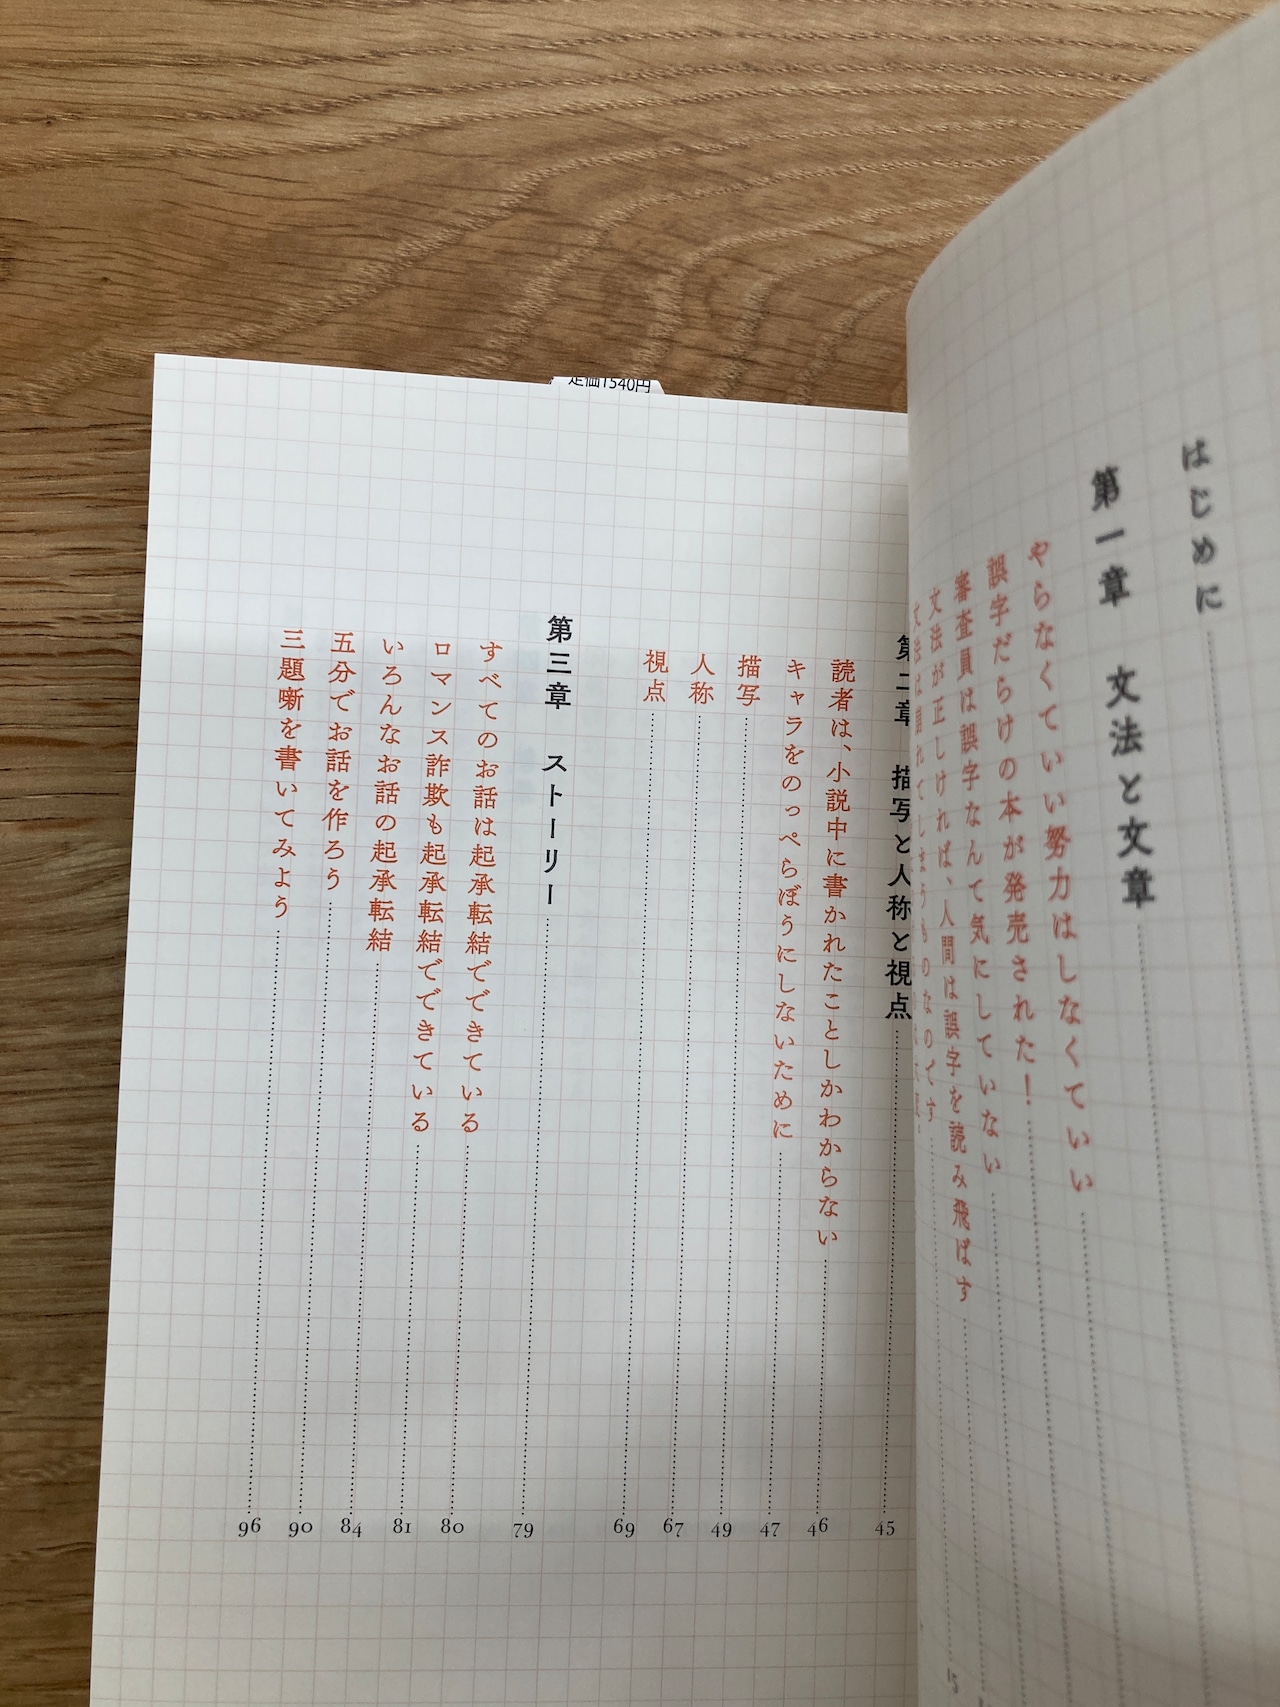 定価1540円
はじめに
第一章 文法と文章
やらなくていい努力はしなくていい
誤字だらけの本が発売された！
審査員は誤字なんて気にしていない
文法が正しければ、人間は誤字を読み飛ばす
文法は崩れてしまうものなのです
15
第二章 描写と人称と視点 45
読者は、小説中に書かれたことしかわからない 46
キャラをのっぺらぼうにしないために 47
描写 49
人称 67
視点 69
第三章 ストーリー 79
すべてのお話は起承転結でできている 80
ロマンス詐欺も起承転結でできている 81
いろんなお話の起承転結 84
五分でお話を作ろう 90
三題噺を書いてみよう 96